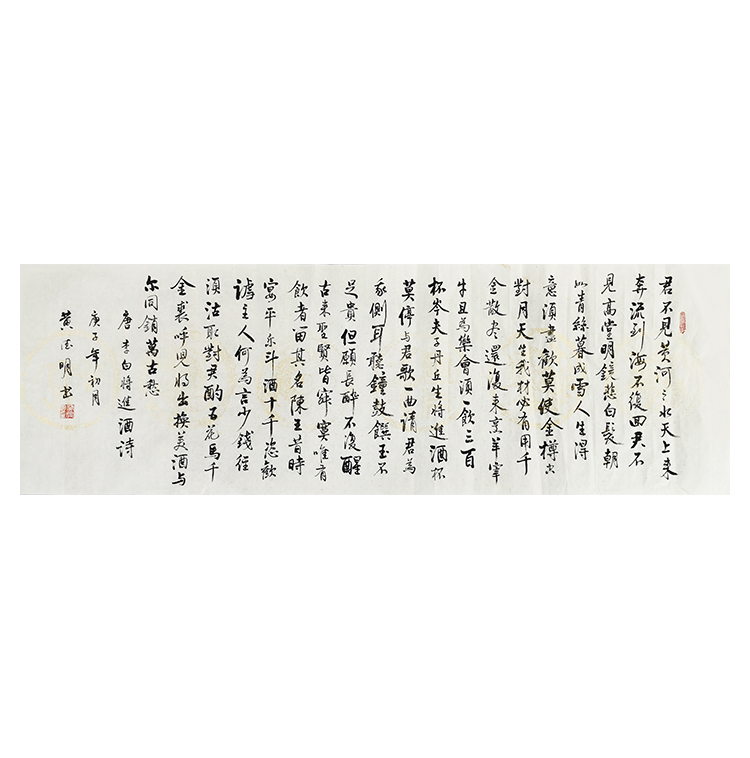 君不見黃河之水天上来
奔流到海不復回君不
見高堂明鏡悲白髮朝
如青絲暮成雪人生得
意須盡歡莫使金樽空
對月天生我材必有用千
金散尽還復来烹羊宰
牛且為樂會須一飲三百
杯岑夫子丹丘生將進酒杯
莫停与君歌一曲請君為
我側耳聽鐘鼓饌玉不
足貴但願長醉不復醒
古来聖賢皆寂寞唯有
飲者留其名陳王昔時
宴平乐斗酒十千恣歡
謔主人何為言少錢徑
須沽取對君酌五花馬千
金裘呼児将出換美酒与
尔同銷萬古愁
唐李白将進酒詩
庚子年初月
黄明书